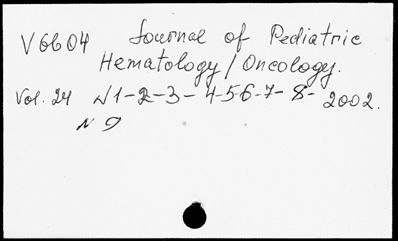 V6604 Journal of Pediatric
Hematology/Oncology.
Vol. 24 N1-2-3-4-5-6-7-8- 2002.
N 9